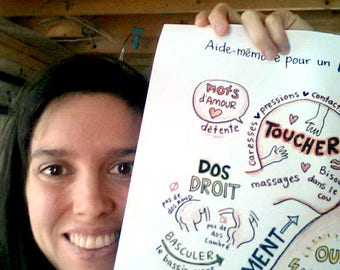 Aide-mémoire pour un
MOTS
d'AMOUR
détente
caresses pressions contact
TOUCHER
Bisou
massages dans le
cou
DOS
DROIT
pas de
dos rond
pas de
dos
cambré
BASCULER
le bassin
OU